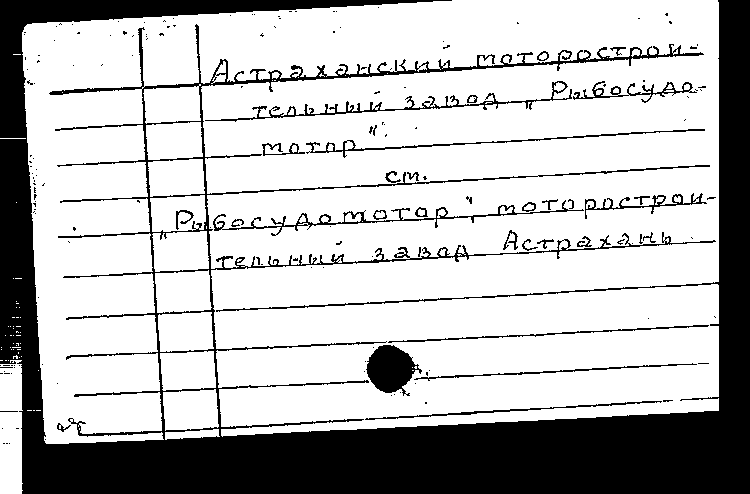 Астраханский моторострои-
тельный завод „Рыбосудо-
мотор".
см.
„Рыбосудомотор", моторострои-
тельный завод Астрахань